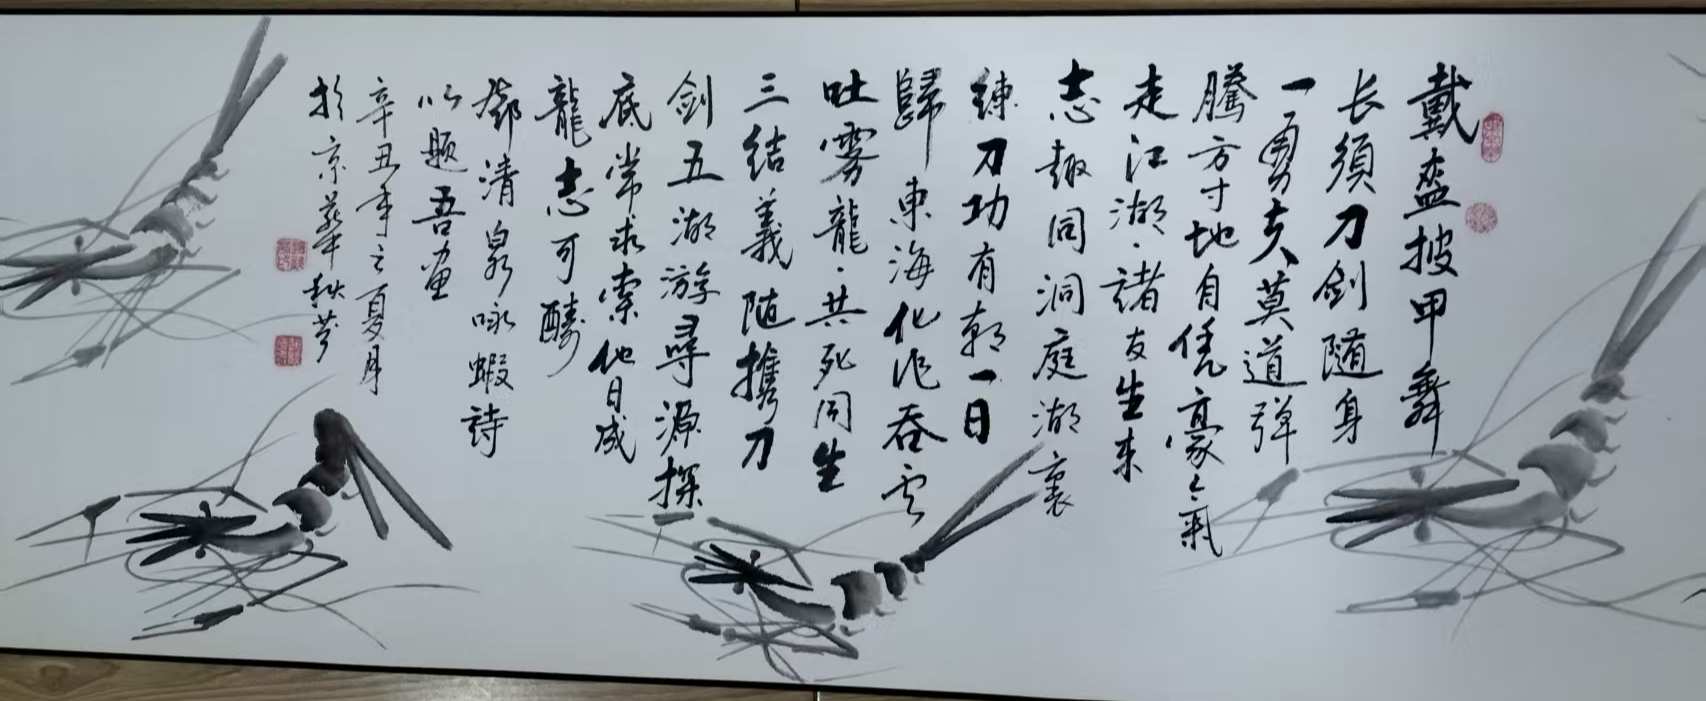 戴盔披甲舞
长须刀剑随身
一勇夫莫道弹
腾方寸地自凭豪气
走江湖·诸友生来
志趣同洞庭湖裏
练刀功有朝一日
歸東海化作吞云
吐雾龍·共死同生
三结義随携刀
剑五湖游尋源探
底常求索他日成
龍志可酬
鄧清泉咏蝦詩
以题吾畫
辛丑年之夏月
於京華秋